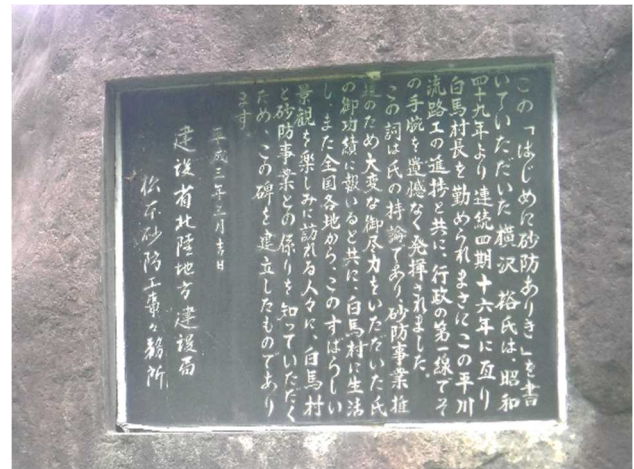 この「はじめに砂防ありき」を書
いていただいた横沢 裕氏は、昭和
四十九年より連続四期十六年に亘り
白馬村長を勤められまさにこの平川
流路工の進捗と共に、行政の第一線でそ
の手腕を遺憾なく発揮されました。
この詞は氏の持論であり、砂防事業推
進のため大変な御尽力をいただいた氏
の御功績に報いると共に、白馬村に生活
し、また全国各地から、このすばらしい
景観を楽しみに訪れる人々に、白馬村
と砂防事業との係りを知っていただく
ため、この碑を建立したものであり
ます。
平成三年三月吉日
建設省北陸地方建設局
松本砂防工事々務所